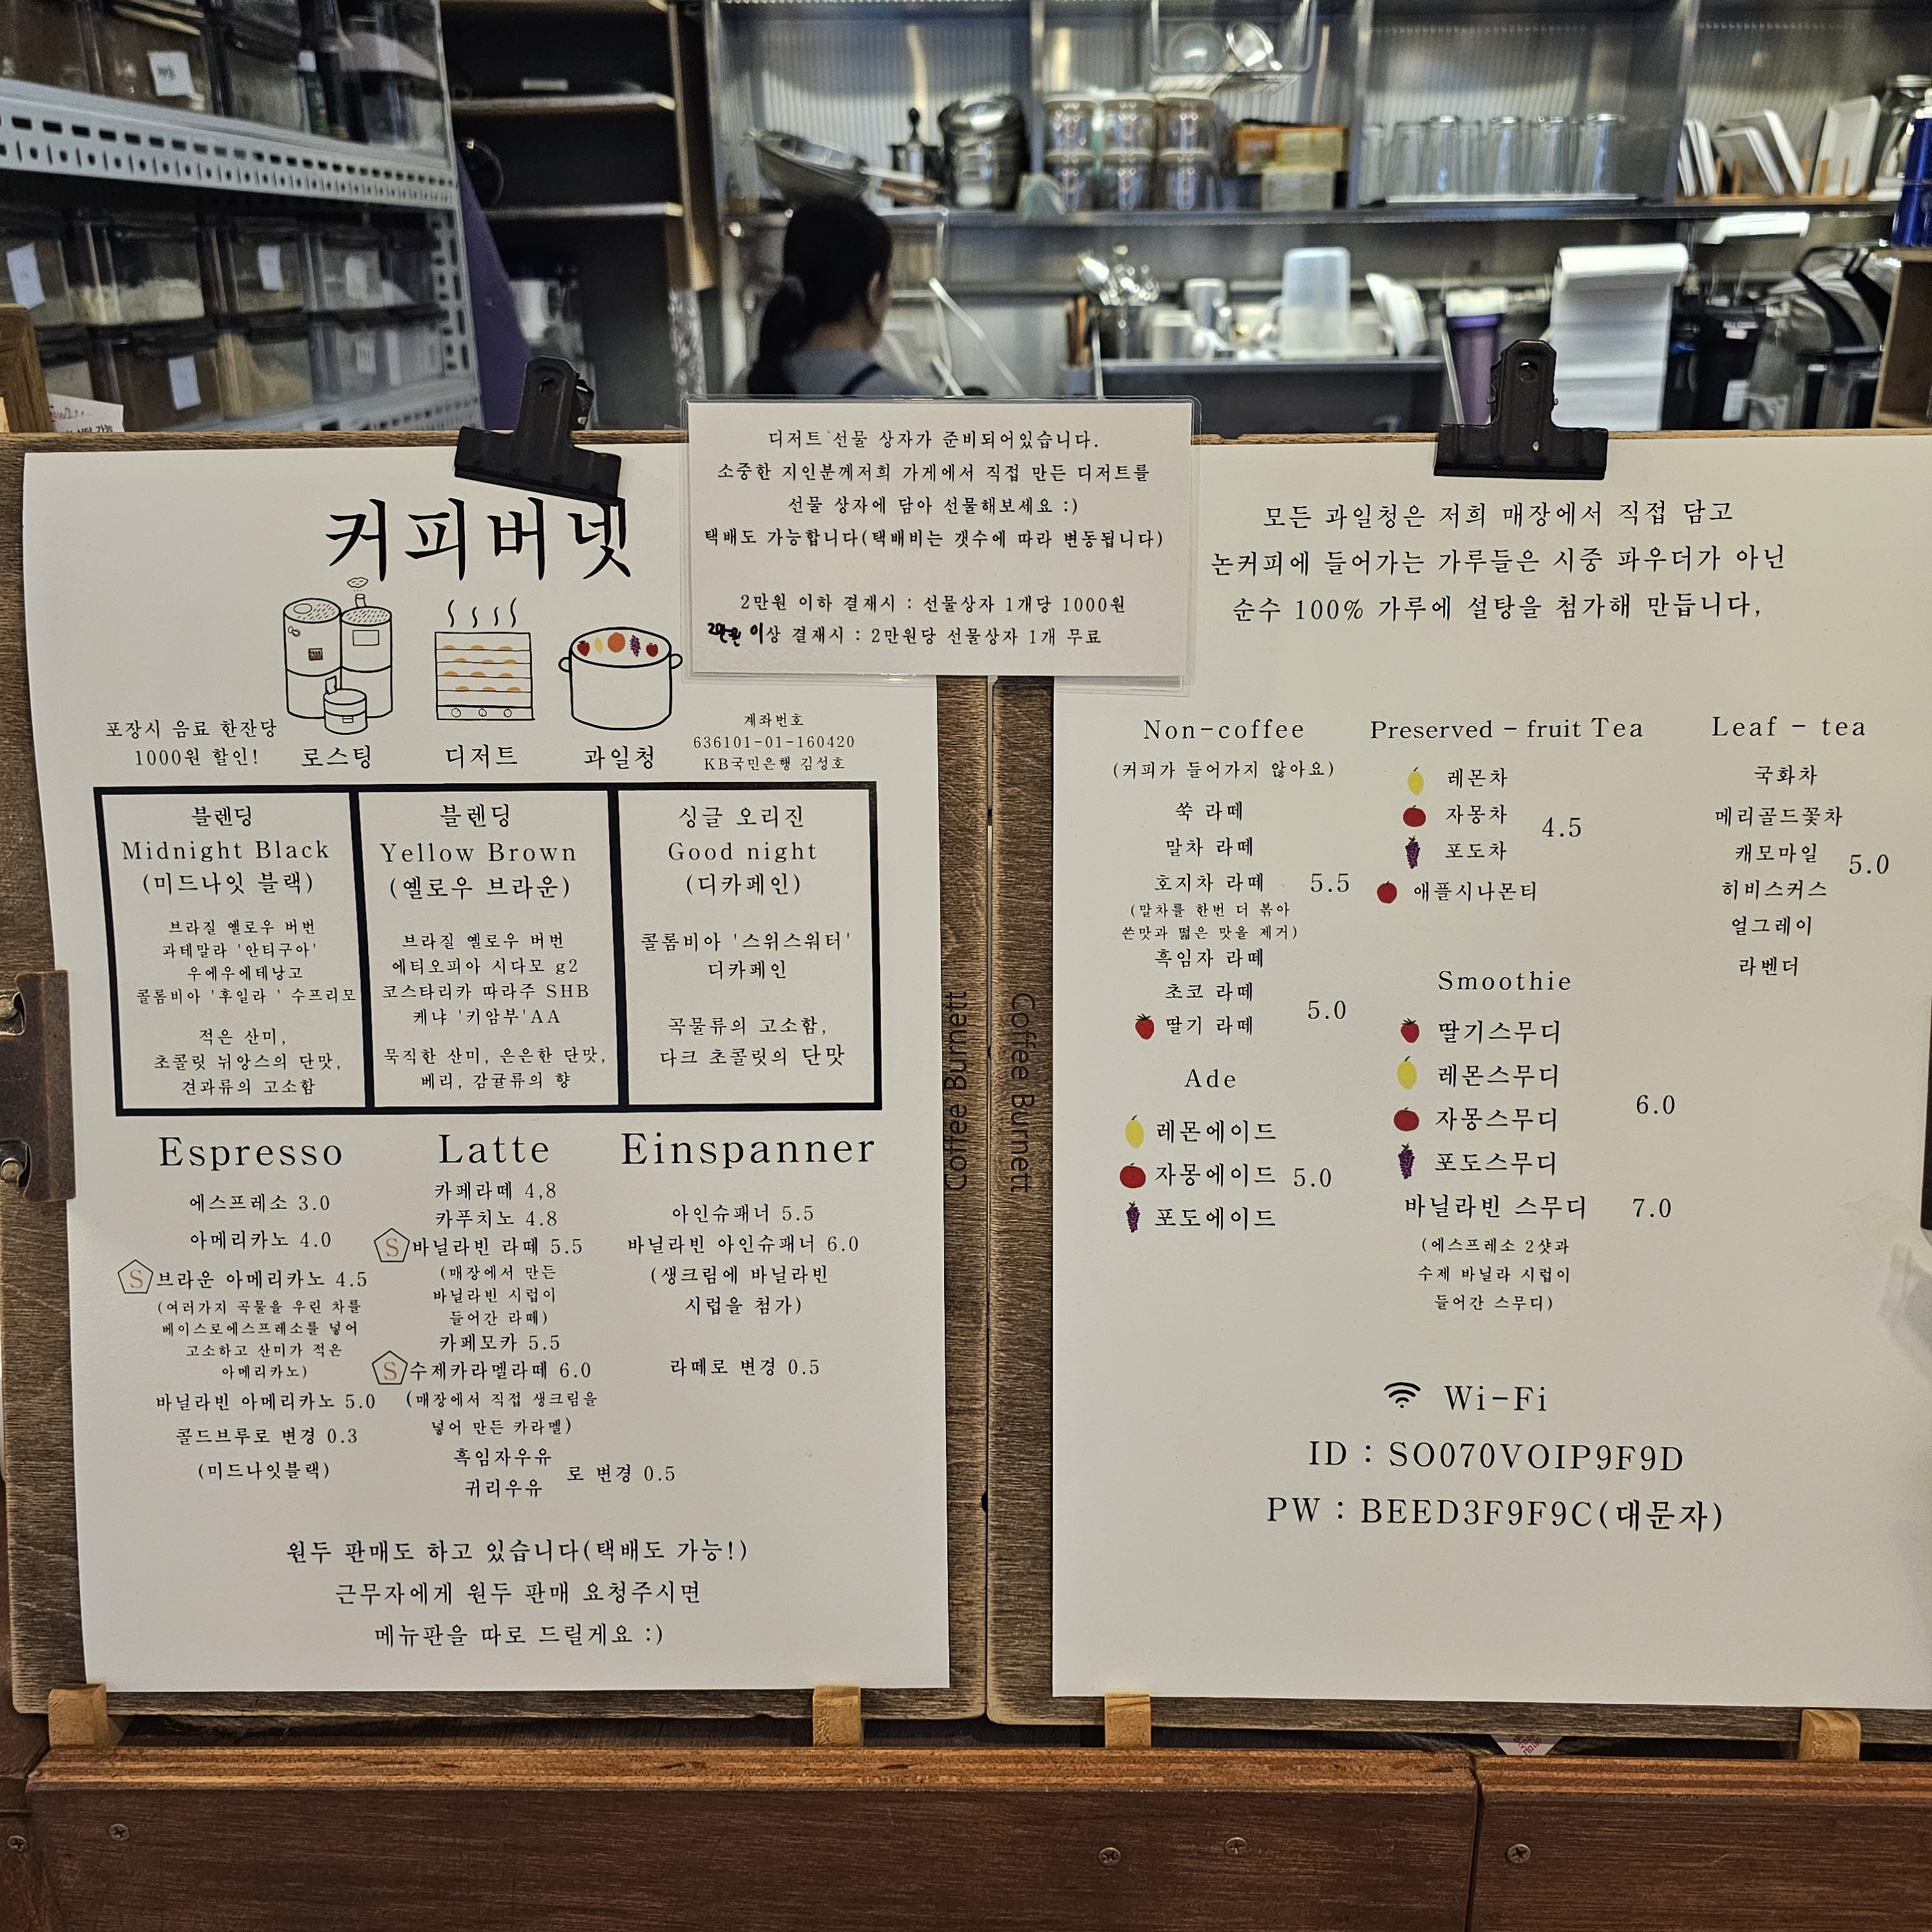 커피버넷
포장시 음료 한잔당
1000원 할인!
로스팅
디저트
과일청
계좌번호
636101-01-160420
KB국민은행 김성호
블렌딩
Midnight Black
(미드나잇 블랙)
브라질 옐로우 버번
과테말라 '안티구아'
우에우에테낭고
콜롬비아 '후일라 ' 수프리모
적은 산미,
초콜릿 뉘앙스의 단맛,
견과류의 고소함
블렌딩
Yellow Brown
(옐로우 브라운)
브라질 옐로우 버번
에티오피아 시다모 g2
코스타리카 따라주 SHB
케냐 '키암부'AA
묵직한 산미, 은은한 단맛,
베리, 감귤류의 향
싱글 오리진
Good night
(디카페인)
콜롬비아 '스위스워터'
디카페인
곡물류의 고소함,
다크 초콜릿의 단맛
Espresso
에스프레소 3.0
아메리카노 4.0
S 브라운 아메리카노 4.5
(여러가지 곡물을 우린 차를
베이스로에스프레소를 넣어
고소하고 산미가 적은
아메리카노)
바닐라빈 아메리카노 5.0
콜드브루로 변경 0.3
(미드나잇블랙)
Latte
카페라떼 4,8
카푸치노 4.8
S 바닐라빈 라떼 5.5
(매장에서 만든
바닐라빈 시럽이
들어간 라떼)
카페모카 5.5
S 수제카라멜라떼 6.0
(매장에서 직접 생크림을
넣어 만든 카라멜)
흑임자우유
귀리우유
로 변경 0.5
Einspanner
아인슈패너 5.5
바닐라빈 아인슈패너 6.0
(생크림에 바닐라빈
시럽을 첨가)
라떼로 변경 0.5
원두 판매도 하고 있습니다(택배도 가능!)
근무자에게 원두 판매 요청주시면
메뉴판을 따로 드릴게요 :)
Coffee Burnett
디저트 선물 상자가 준비되어있습니다.
소중한 지인분께저희 가게에서 직접 만든 디저트를
선물 상자에 담아 선물해보세요 :)
택배도 가능합니다(택배비는 갯수에 따라 변동됩니다)
2만원 이하 결재시 : 선물상자 1개당 1000원
2만원 이상 결재시 : 2만원당 선물상자 1개 무료
Coffee Burnett
모든 과일청은 저희 매장에서 직접 담고
논커피에 들어가는 가루들은 시중 파우더가 아닌
순수 100% 가루에 설탕을 첨가해 만듭니다,
Non-coffee
(커피가 들어가지 않아요)
쑥 라떼
말차 라떼
호지차 라떼 5.5
(말차를 한번 더 볶아
쓴맛과 떫은 맛을 제거)
흑임자 라떼
초코 라떼
5.0
딸기 라떼
Ade
레몬에이드
자몽에이드 5.0
포도에이드
Preserved - fruit Tea
레몬차
자몽차
4.5
포도차
애플시나몬티
Smoothie
딸기스무디
레몬스무디
6.0
자몽스무디
포도스무디
바닐라빈 스무디 7.0
(에스프레소 2샷과
수제 바닐라 시럽이
들어간 스무디)
Leaf - tea
국화차
메리골드꽃차
캐모마일
5.0
히비스커스
얼그레이
라벤더
Wi-Fi
ID : SO070VOIP9F9D
PW : BEED3F9F9C(대문자)